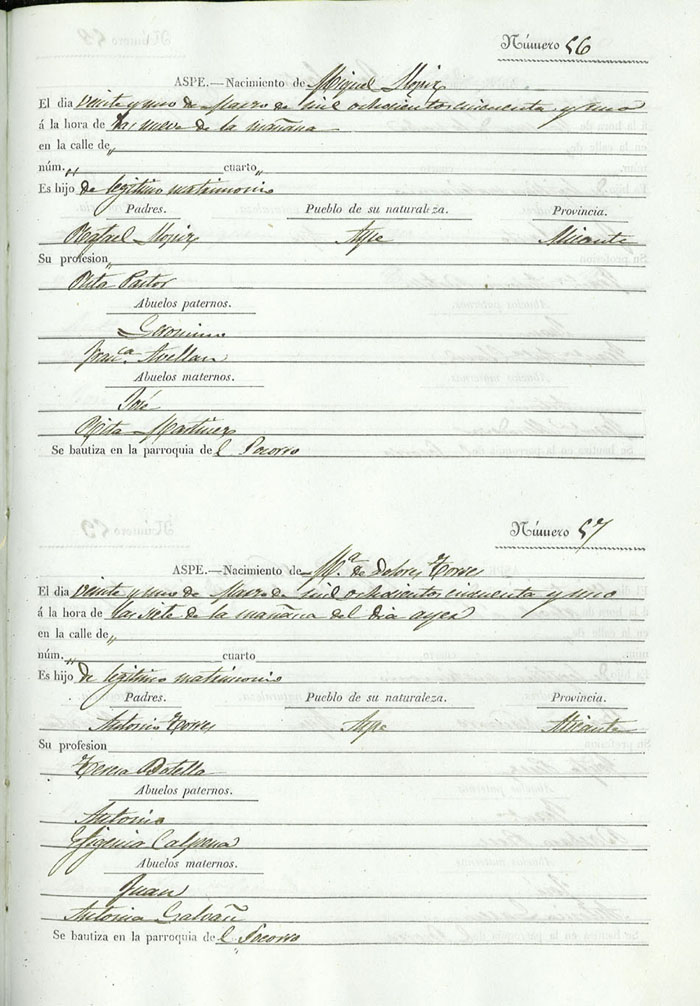 Número 56
ASPE.—Nacimiento de Miguel Llopiz
El dia veinte y uno de Marzo de mil ochocientos cincuenta y uno
á la hora de las nueve de la mañana
en la calle de „
núm. „ cuarto „
Es hijo de legitimo matrimonio
Padres. Pueblo de su naturaleza. Provincia.
Rafael Llopiz Aspe Alicante
Su profesion „
Rita Pastor
Abuelos paternos.
Geronimo
Franca Avellan
Abuelos maternos.
José
Rita Martinez
Se bautiza en la parroquia del Socorro
Número 57
ASPE.—Nacimiento de Ma de Dolores Torres
El dia veinte y uno de Marzo de mil ochocientos cincuenta y uno
á la hora de las siete de la mañana del dia ayer
en la calle de „
núm. „ cuarto
Es hijo de legitimo matrimonio
Padres. Pueblo de su naturaleza. Provincia.
Antonio Torres Aspe Alicante
Su profesion
Teresa Botella
Abuelos paternos.
Antonio
Efigenia Calpena
Abuelos maternos.
Juan
Antonia Galvañ
Se bautiza en la parroquia del Socorro